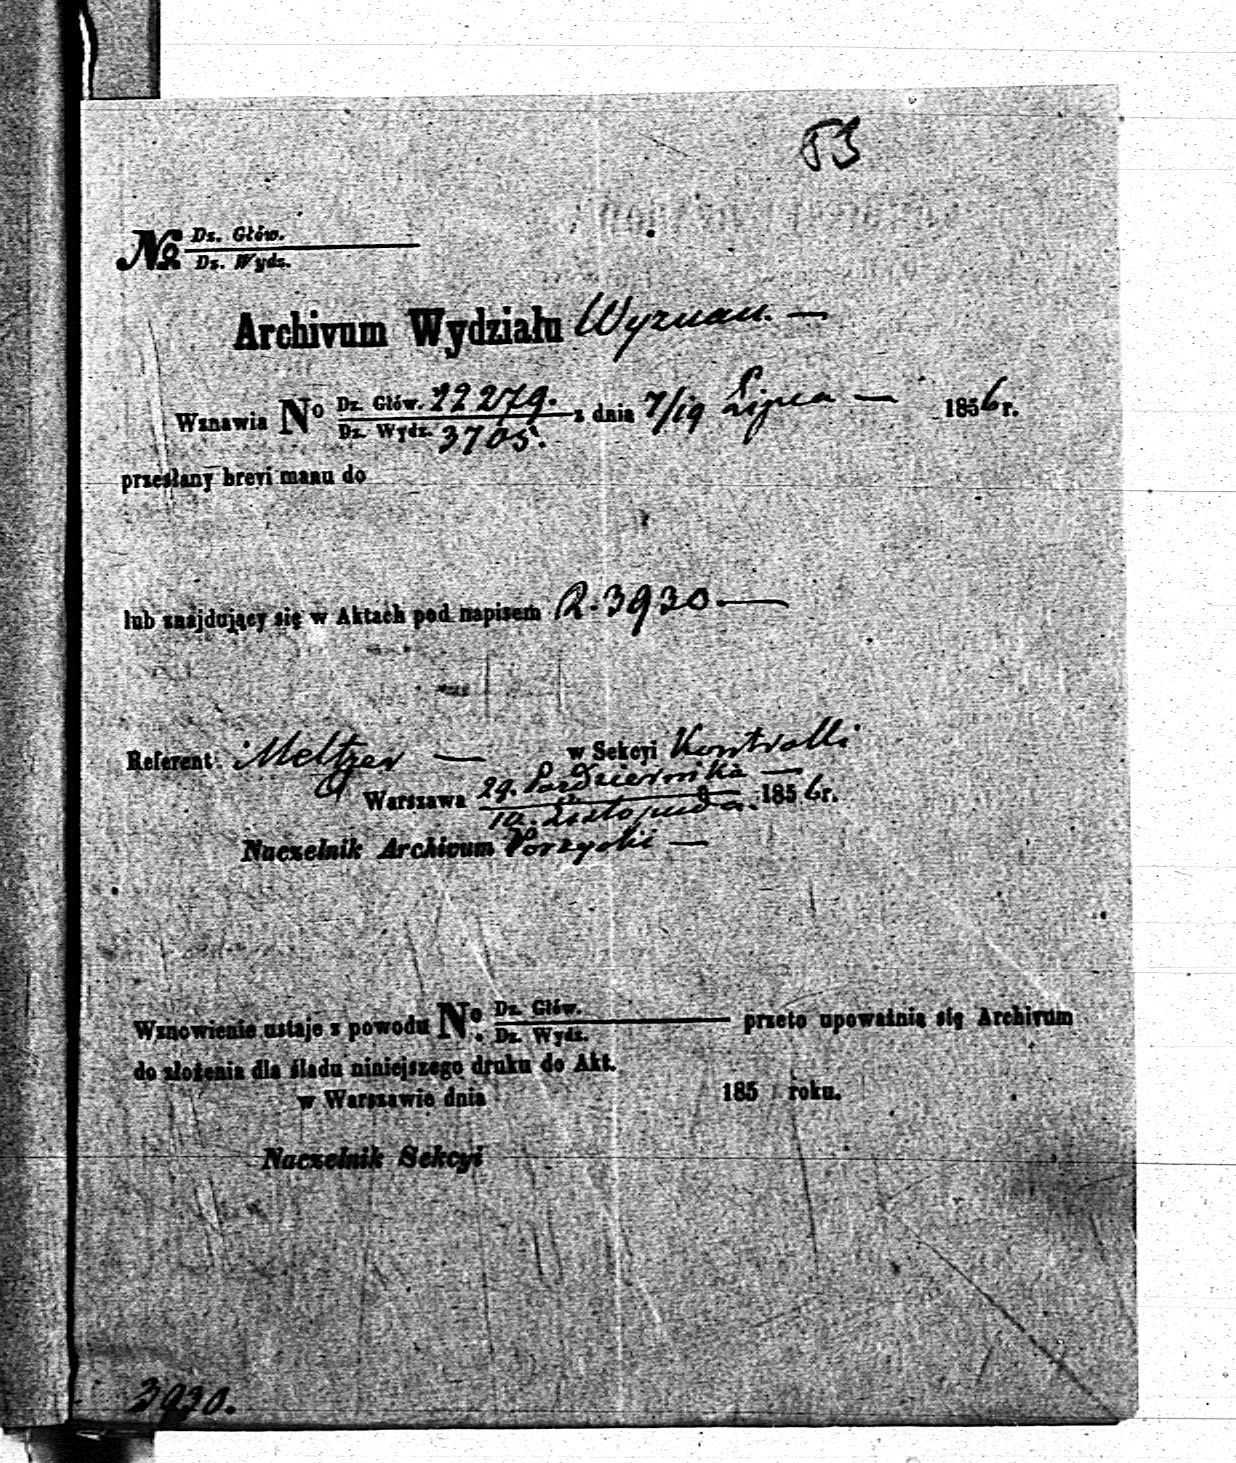 53
No Dz. Głów.
Dz. Wydz.
Archivum Wydziału Wyznań. —
Wznawia No Dz. Głów. 22279. z dnia 7/19 Lipca — 1856 r.
Dz. Wydz. 3705.
przesłany brevi manu do
lub znajdujący się w Aktach pod napisem R. 3930. —
Referent Meltzer — w Sekcyi Kontrolli
Warszawa 29. Października — 1856 r.
10. Listopada.
Naczelnik Archivum —
Wznowienie ustaje z powodu No. Dz. Głów. przeto upoważnia się Archivum
Dz. Wydz.
do złożenia dla śladu niniejszego druku do Akt.
w Warszawie dnia 185 roku.
Naczelnik Sekcyi
3930.